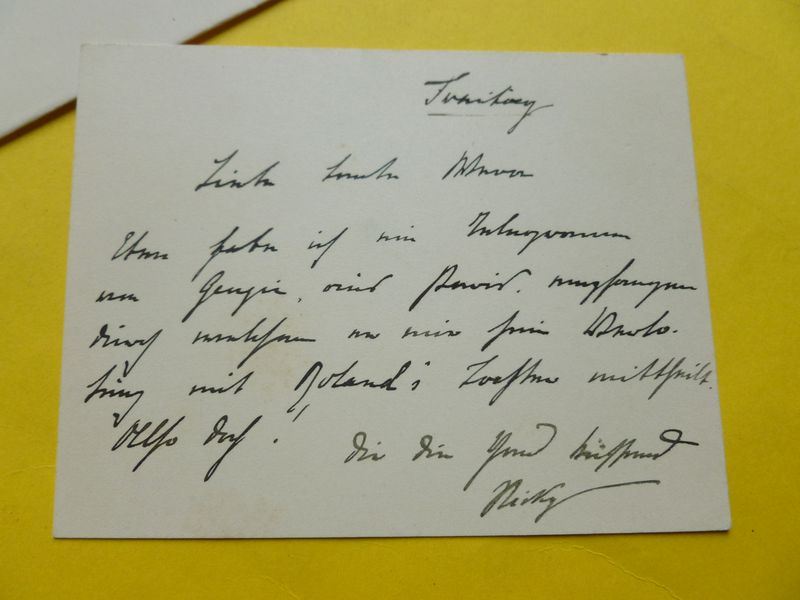 Freitag
Liebe Tante Marva
Eben habe ich ein Telegramm
von Gengie, aus Paris. empfangen
durch welchem er mir seine Verlo-
bung mit Roland's Tochter mittheilt.
"Also doch!"
Dir die Hand küssend
Nicky